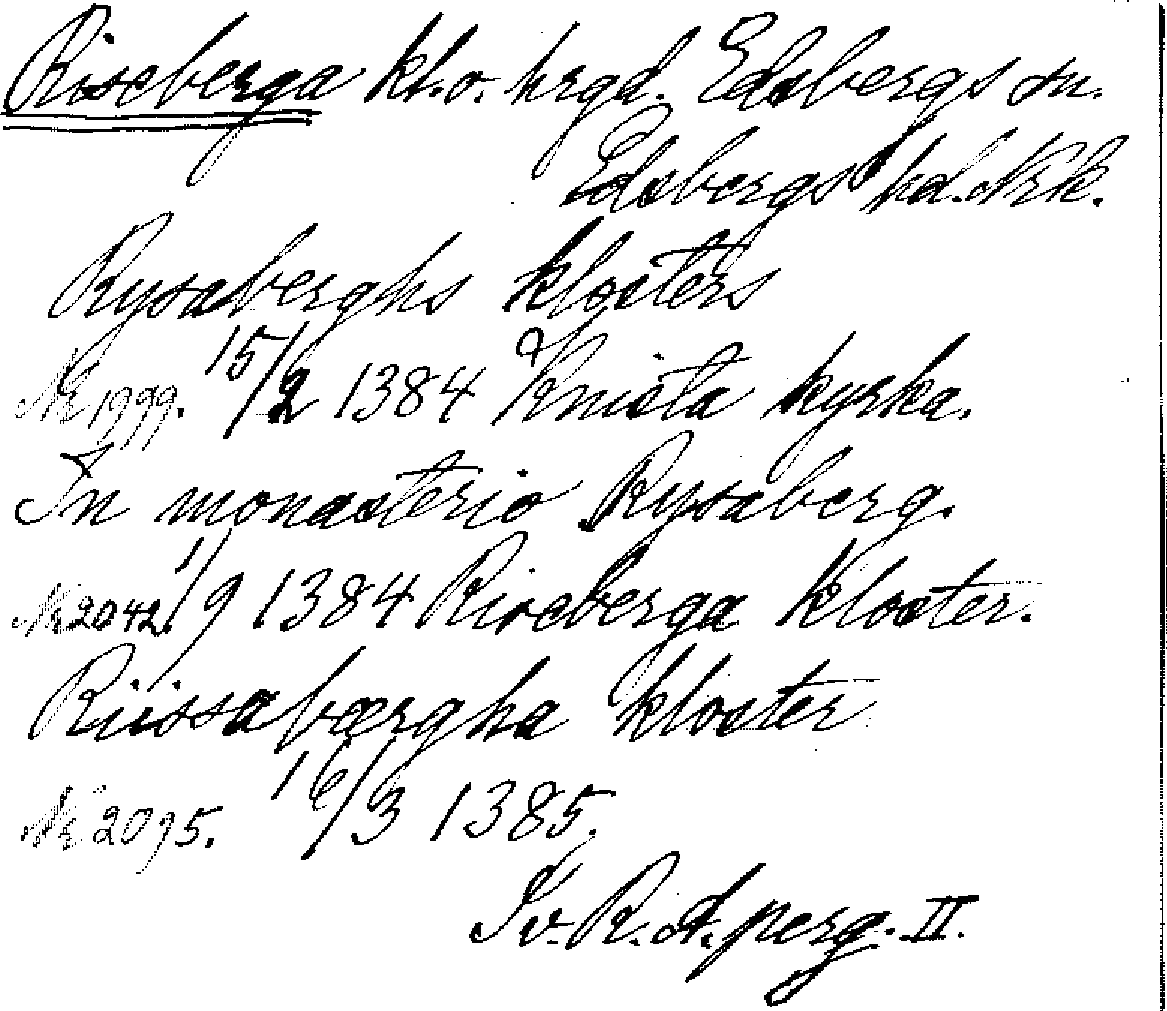 Riseberga kl.o. hrgd. Edsbergs sn.
Edsbergs hd. Nrk.
Rysaberghs klosters
Nr 1999. 15/2 1384 Knista kyrka.
In monasterio Rysaberg.
Nr 2042. 1/9 1384 Riseberga kloster.
Riissabærgha kloster
Nr 2095. 16/3 1385.
Sv. R. A. perg. II.